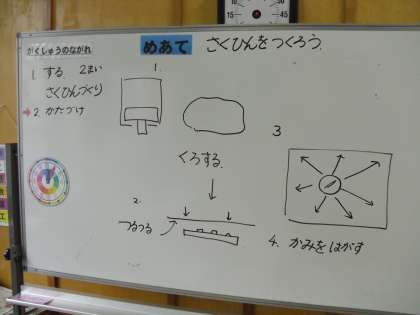 がくしゅうのながれ
めあて さくひんをつくろう.
1 する 2まい
さくひんづくり
2 かたづけ
1.
くろする.
2.
つるつる
3
4. かみをはがす